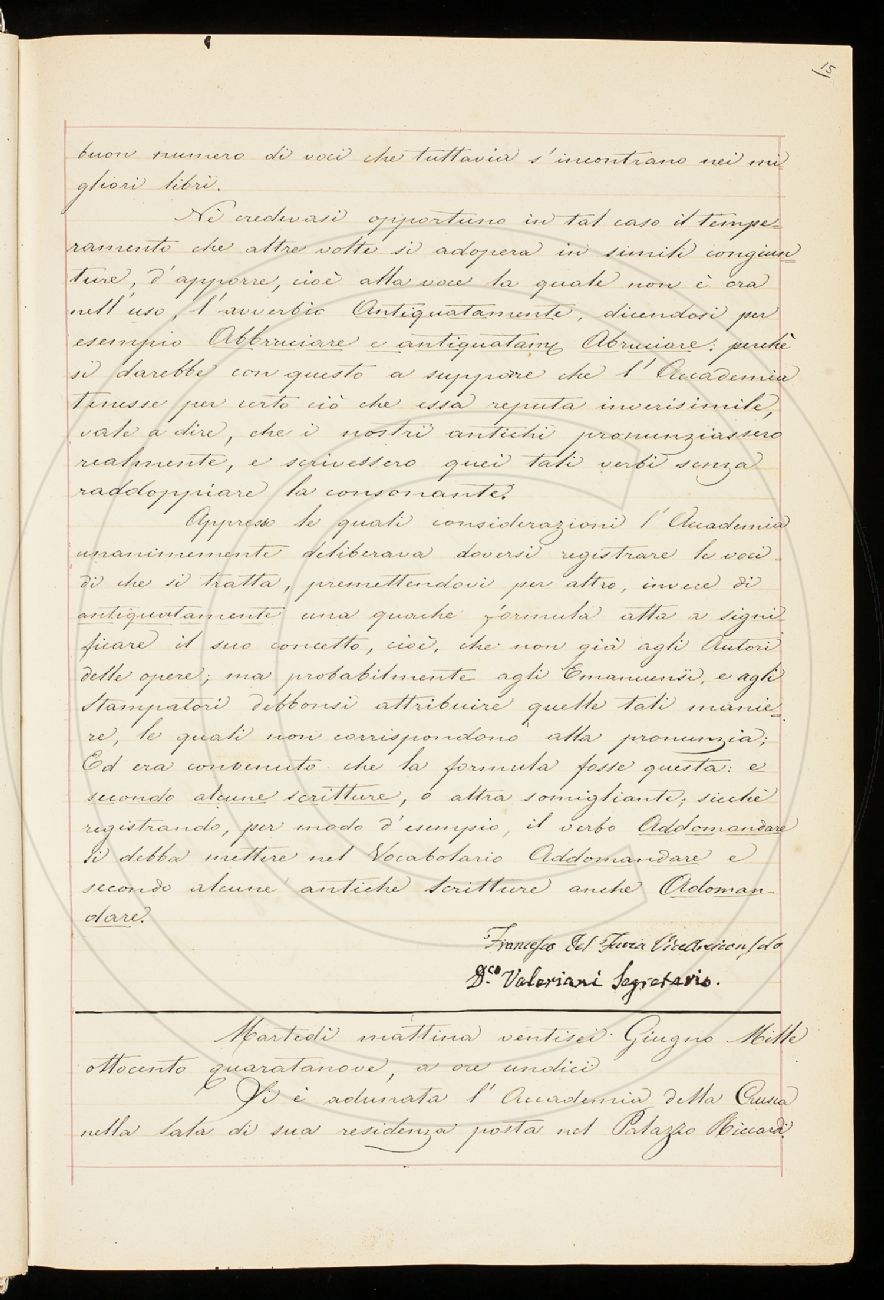 15
buon numero di voci che tuttavia s'incontrano nei mi-
gliori libri.
Nè credevasi opportuno in tal caso il tempe=
ramento che altre volte si adopera in simili congiun=
ture, d'apporre, cioè alla voce la quale non è ora
nell'uso, l'avverbio Antiquatamente, dicendosi per
esempio Abbruciare e antiquatam Abruciare: perchè
si darebbe con questo a supporre che l'Accademia
tenesse per certo ciò che essa reputa inverisimile,
vale a dire, che i nostri antichi pronunziassero
realmente, e scrivessero quei tali verbi senza
raddoppiare la consonante.
Appresso le quali considerazioni l'Accademia
unanimemente deliberava doversi registrare le voci
di che si tratta, premettendovi per altro, invece di
antiquatamente una qualche formula atta a signi-
ficare il suo concetto, cioè, che non già agli Autori
delle opere; ma probabilmente agli Emanuensi, e agli
Stampatori debbonsi attribuire quelle tali manie=
re, le quali non corrispondono alla pronunzia;
Ed era convenuto che la formula fosse questa: e
secondo alcune scritture, o altra somigliante; sicchè
registrando, per modo d'esempio, il verbo Addomandare
si debba mettere nel Vocabolario Addomandare e
secondo alcune antiche scritture anche Adoman-
dare.
Francesco Del Furia
Dco Valeriani Segretario.
Martedì mattina ventisei Giugno Mille
ottocento quarantanove, a ore undici
Si è adunata l'Accademia della Crusca
nella sala di sua residenza posta nel Palazzo Riccardi